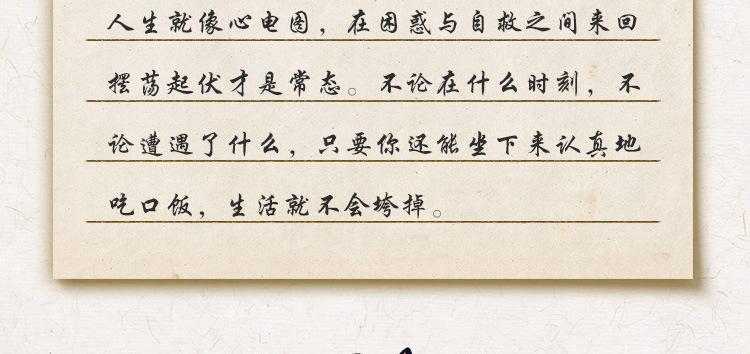 人生就像心电图，在困惑与自救之间来回
摆荡起伏才是常态。不论在什么时刻，不
论遭遇了什么，只要你还能坐下来认真地
吃口饭，生活就不会垮掉。